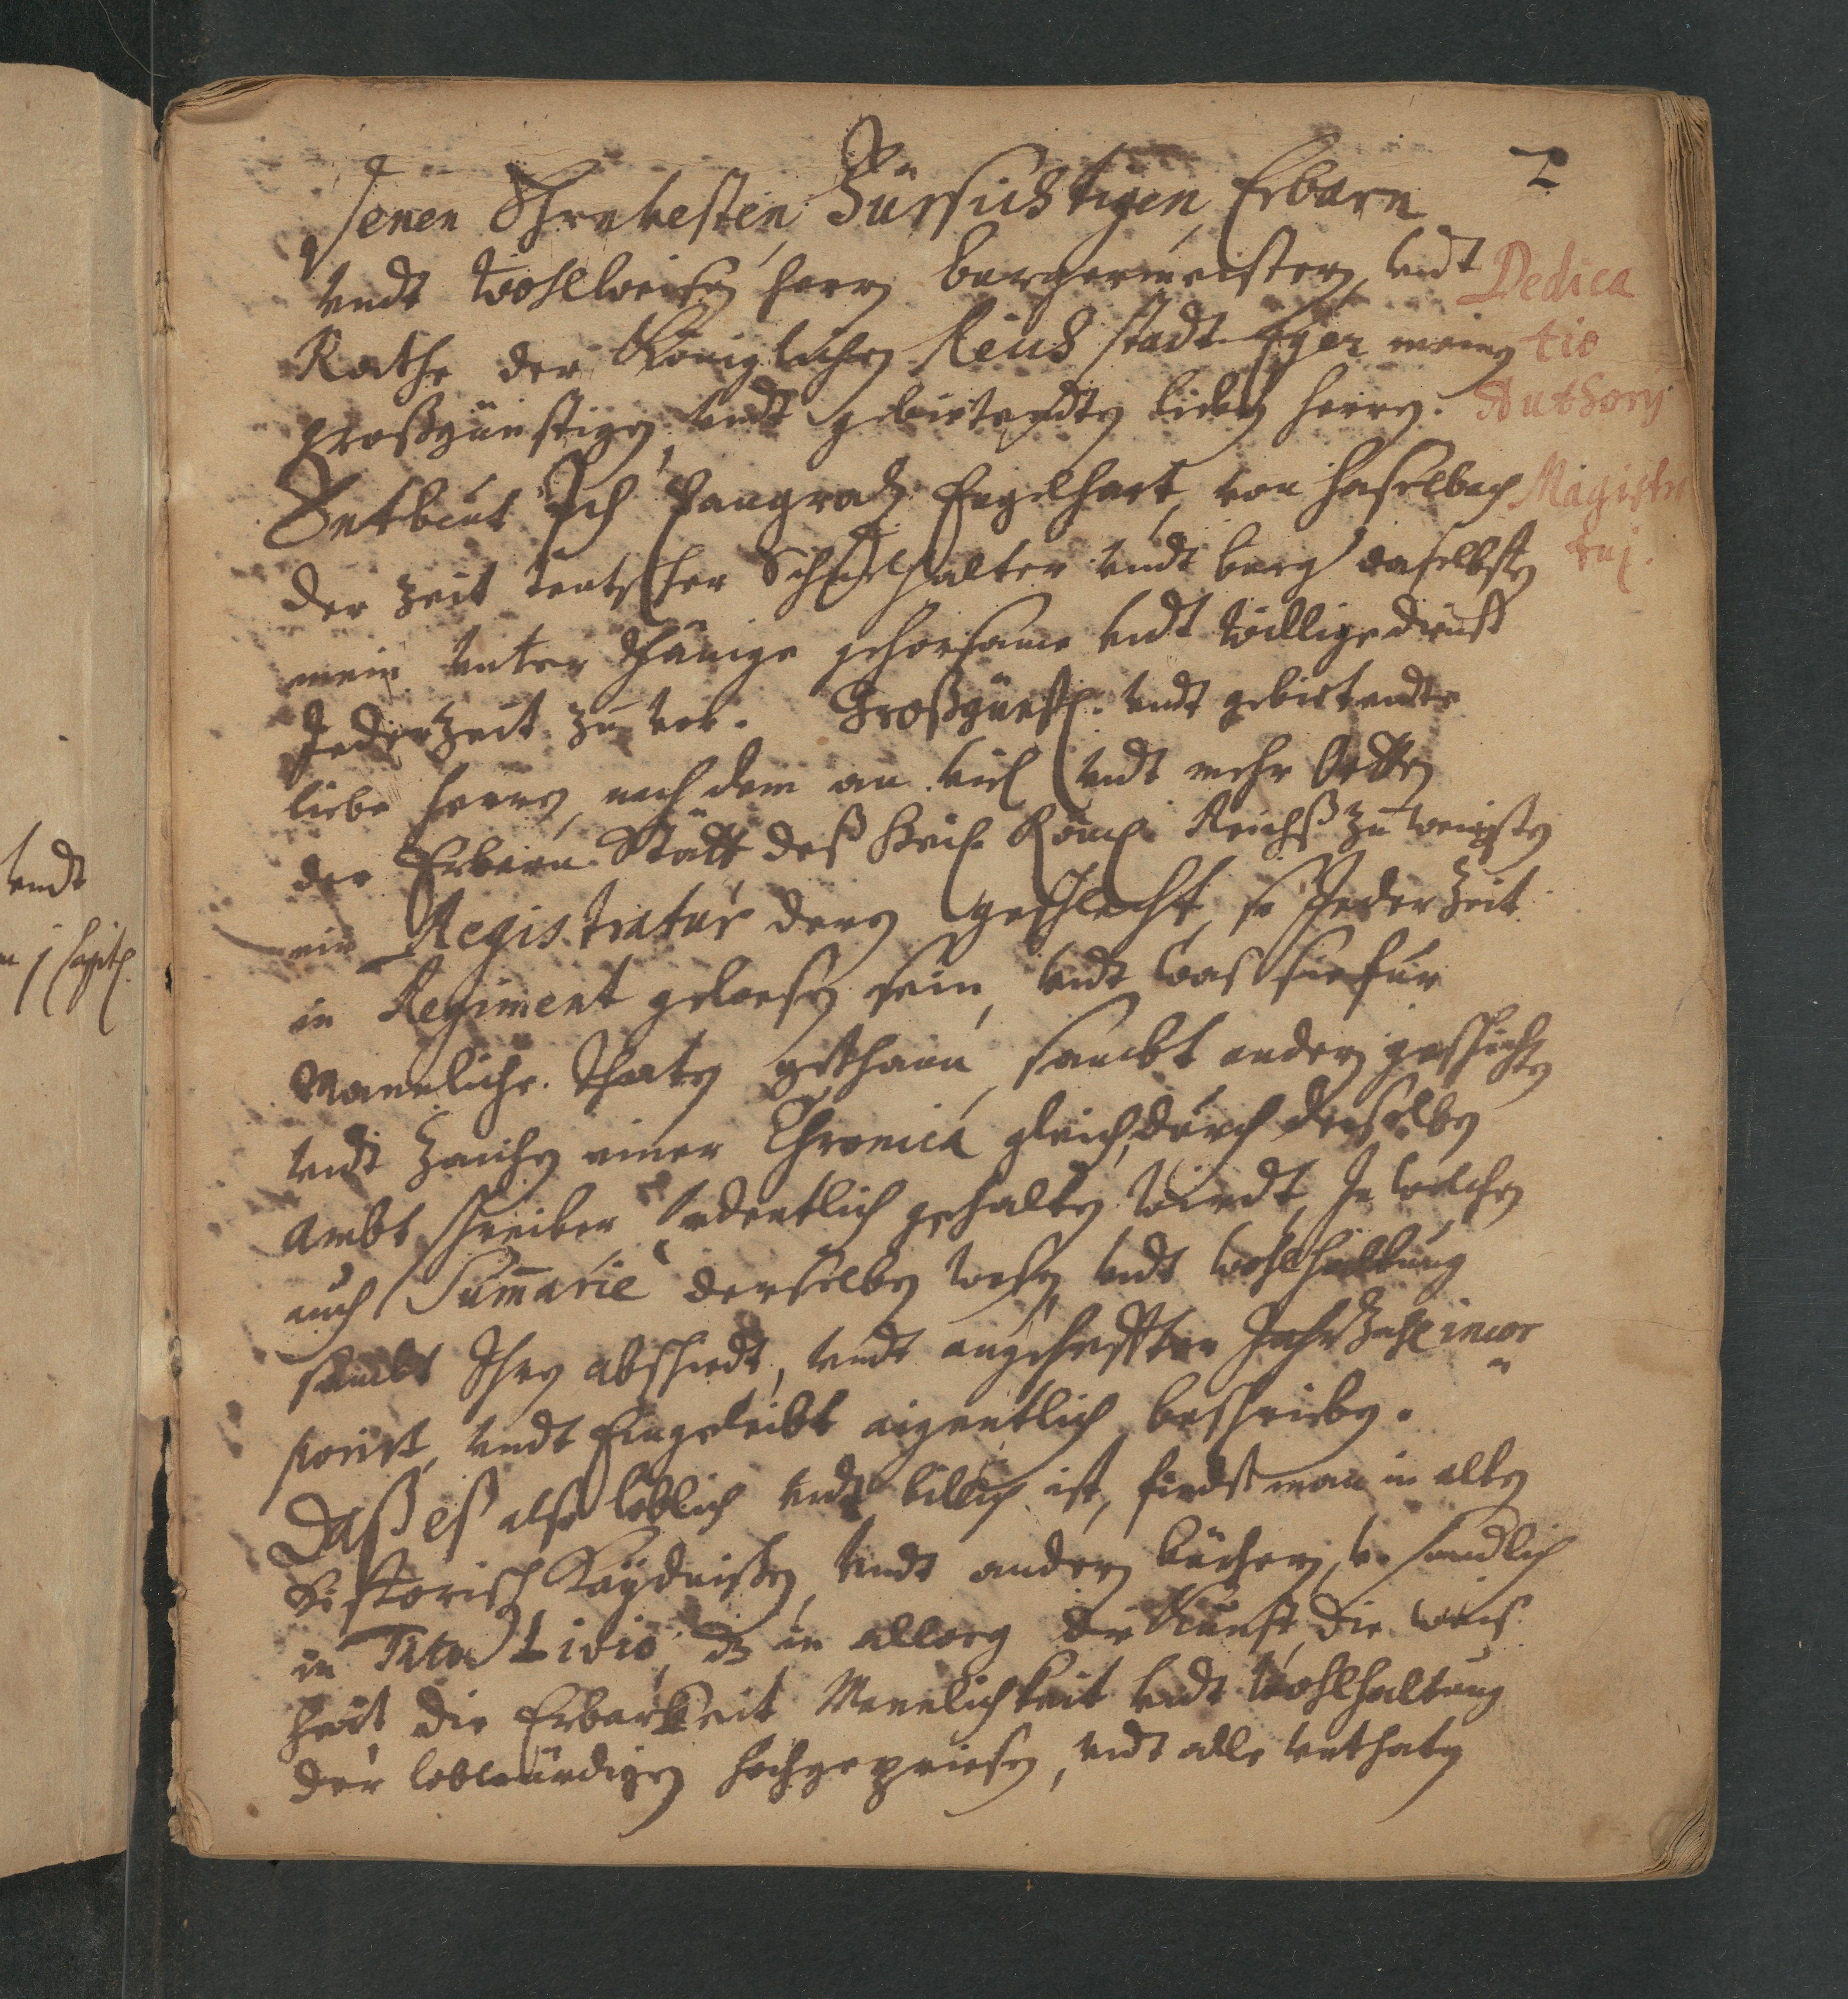 2
Jenen Ehrnvesten, Fürsichtigen, Erbarn
vndt Wohlweisen herrn burgermeistern, vndt
Rathe der Königlichen Reichs stadt Eger meinen
großgünstigen vndt gebietendten lieben herrn.
Entbeut Ich Pangratz Engelhart, von haselbach
der Zeit teutscher Schuelhalter vndt burg daselbsten
mein vnter thänige gehorsame vndt willige dienst
Jederzeit zu vor. Großgünstl. vndt gebietendte
liebe herrn, nach dem an viel vndt mehr Ortten
der Erbarn Stätt deß Heil. Röml. Reichß zu wenigsten
ein Registratur dern geschlecht, so Jeder Zeit
in Regiment gewesen sein, vndt waß sie für
Mannliche. thaten gethann, sambt andern geschichten
vndt Zaichen einer Chronica gleich, durch dieselben
Ambt schreiber ordentlich gehalten wirdt, In welchen
auch Summarie derselben wesen vndt wohlhaltung
sambt Ihrn abschiedt, vndt angeheffter Jahrzahl incor
porirt, vndt Eingeleibt aigentlich beschrieben.
Daß eß also löblich vndt billich ist, findt man in alten
historisch vndt andern büchern, v. sondlich
in Tito Livio, dz in allweg die Kunst, die weis
heit die Erbarkeit Mannlichkeit vndt wohlhaltung
der lobwürdigen hochgepriesen, vndt alle vnthaten
Dedica
tio
Authorij
Magistra
tuj.
vndt
1 Capitl.